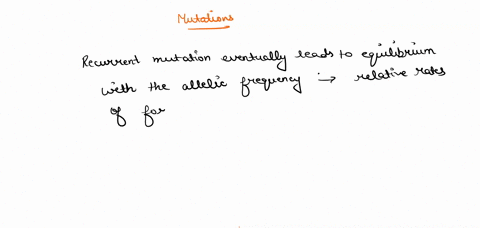 Mutations
Recurrent mutation eventually leads to equilibrium
with the allelic frequency :→ relative rates
of for